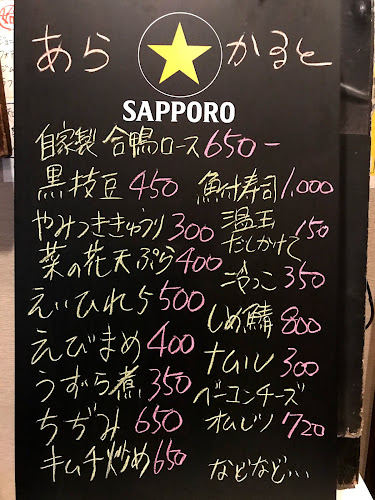 あら かると
SAPPORO
自家製 合鴨ロース 650-
黒枝豆 450
やみつききゅうり 300
菜の花天ぷら 400
えいひれ 500
えびまめ 400
うずら煮 350
ちぢみ 650
キムチ炒め 650
寿司 1,000
温玉
だしかけて 150
冷っこ 350
しめ鯖 800
ナムル 300
ベーコンチーズ
オムレツ 720
などなど...